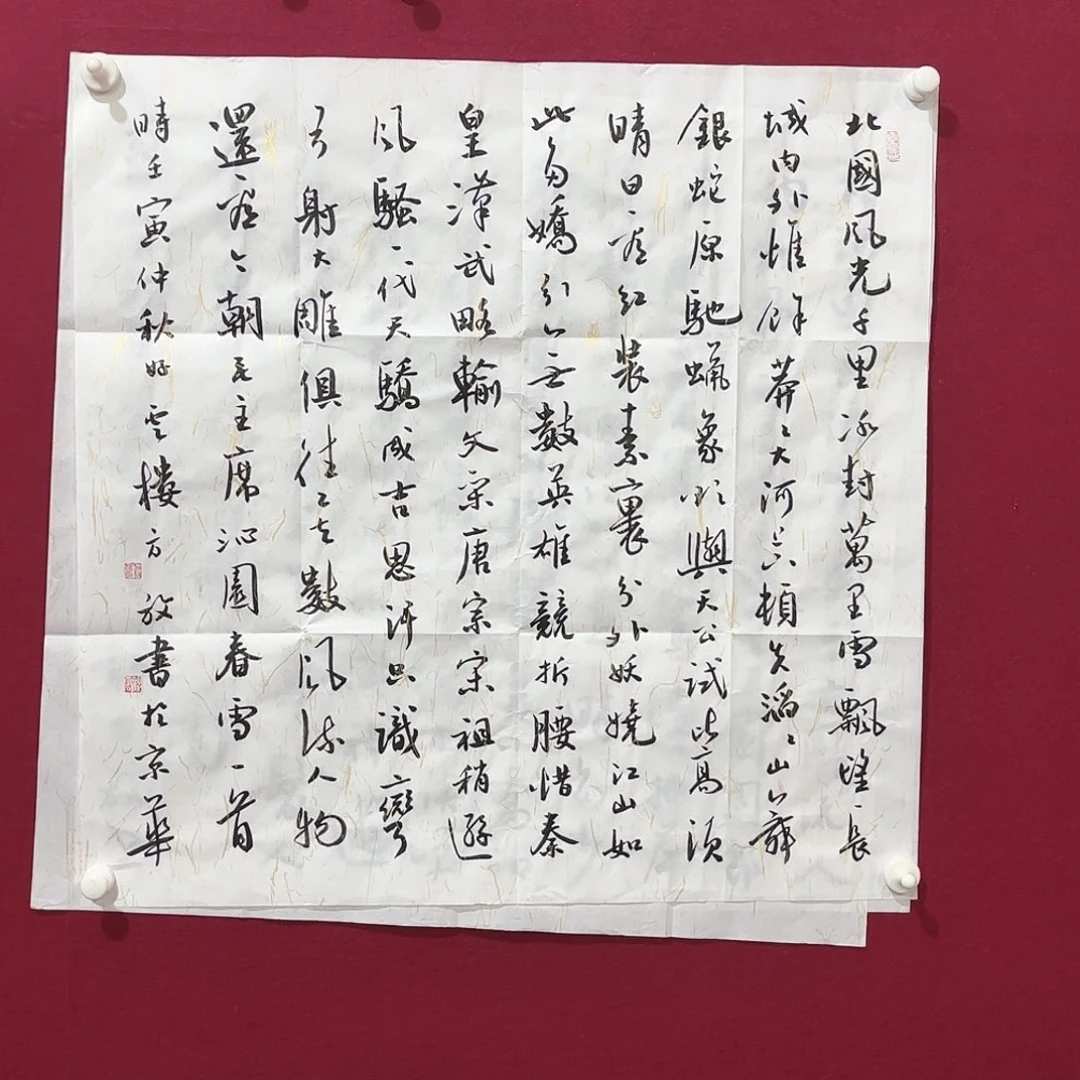 北國風光千里冰封萬里雪飄望長
城内外惟餘莽〻大河上下頓失滔〻山舞
銀蛇原馳蠟象欲與天公試比高須
晴日看紅裝素裹分外妖嬈江山如
此多嬌引無數英雄競折腰惜秦
皇漢武略輸文采唐宗宋祖稍遜
風騷一代天驕成吉思汗只識彎
弓射大雕俱往矣數風流人物
還看今朝毛主席沁園春雪一首
時壬寅仲秋好雲樓方放書於京華